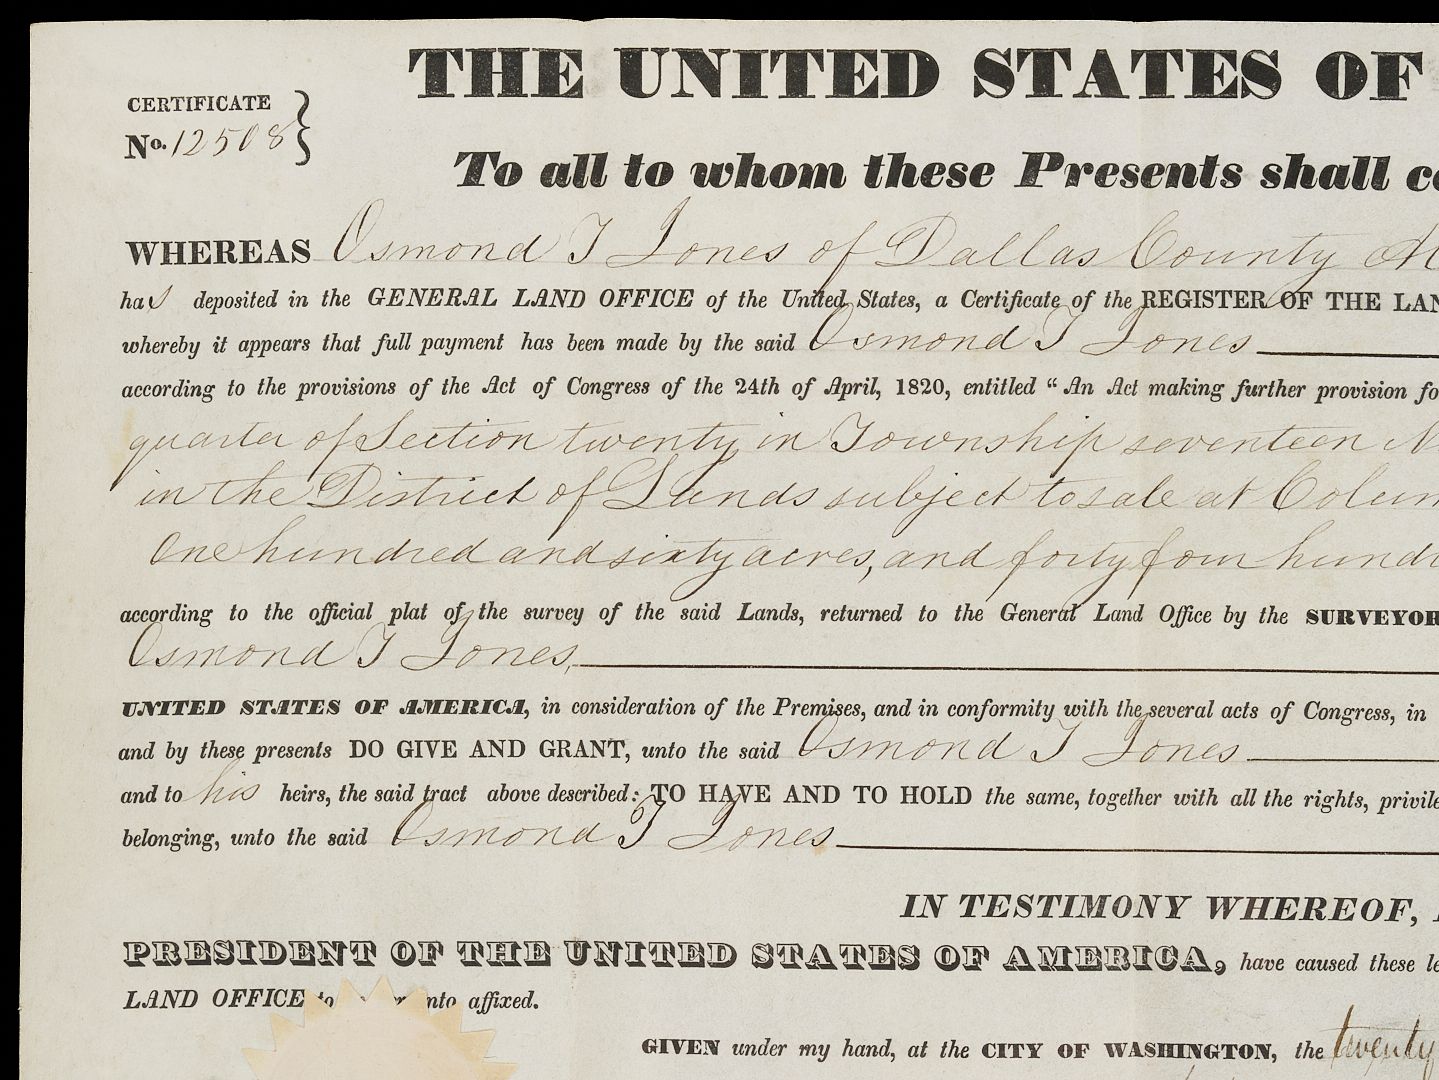 THE UNITED STATES OF
CERTIFICATE
No. 12508
To all to whom these Presents shall
WHEREAS Osmond T Jones of Dallas County
has deposited in the GENERAL LAND OFFICE of the United States, a Certificate of the REGISTER OF THE
whereby it appears that full payment has been made by the said Osmond T Jones
according to the provisions of the Act of Congress of the 24th of April, 1820, entitled “An Act making further provision
quarter of Section twenty in Township seventeen
in the District of Lands subject to sale at
One hundred and sixty acres, and forty four
according to the official plat of the survey of the said Lands, returned to the General Land Office by the
Osmond T Jones,
UNITED STATES OF AMERICA, in consideration of the Premises, and in conformity with the several acts of Congress, in
and by these presents DO GIVE AND GRANT, unto the said Osmond T Jones
and to his heirs, the said tract above described: TO HAVE AND TO HOLD the same, together with all the rights,
belonging, unto the said Osmond T Jones
IN TESTIMONY WHEREOF,
PRESIDENT OF THE UNITED STATES OF AMERICA, have caused these
LAND OFFICE to affixed.
GIVEN under my hand, at the CITY OF WASHINGTON, the twenty